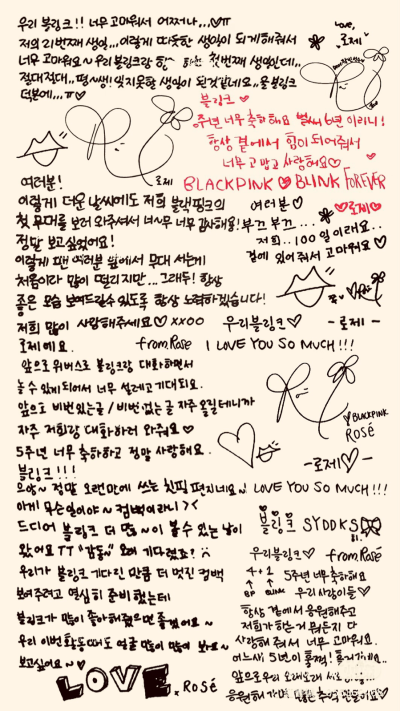 우리 블링크!! 너무 고마워서 어쩌나,,,♡ㅠ
저의 21번째 생일,,,이렇게 따뜻한 생일이 되게해줘서
너무 고마워요~우리 블링크랑 첫번째 생일인데,,
절대절대,,평~생! 잊지못할 생일이 된것같네요,,울블링크
덕분에,,,ㅠ♡
Love,
로제
블링크 ♡
주년 너무 축하해요 벌써 6년 이라니!
항상 곁에서 힘이 되어줘서
너무 고맙고 사랑해요♡
BLACKPINK ♡ BLINK FOREVER
♡로제♡
로제
여러분!
이렇게 더운 날씨에도 저희 블랙핑크의
첫 무대를 보러 와주셔서 너~무 너무 감사해요!
정말 보고싶었어요!
이렇게 팬 여러분 앞에서 무대 서는게
처음이라 많이 떨리지만...그래두! 항상
좋은 모습 보여드릴수 있도록 항상 노력하겠습니다!
저희 많이 사랑해주세요♡ xxoo
로제예요.
여러분♡
부끄 부끄...
저희..100일이래요..
곁에 있어줘서 고마워요♡
우리블링크♡ -로제-
from Rosé I LOVE YOU SO MUCH!!!
앞으로 위버스로 블링크랑 대화하면서
놀 수 있게 되어서 너무 설레고 기대되요.
앞으로 비번있는글/비번 없는 글 자주 올릴테니까
자주 저희랑 대화하러 와줘요♡
5주년 너무 축하하고 정말 사랑해요.
♡BLACKPINK
ROSÉ
-로제♡-
블링크!!!
으앙~ 정말 오랜만에 쓰는 친필 편지네요~! I LOVE YOU SO MUCH!!!
아게 무슨일이야~ 컴백이라니 >.<
드디어 블링크 더 많~이 볼수 있는 날이
왔어요 TT "감동" 오래 기다렸죠?
우리가 블링크 기다린 만큼 더 멋진 컴백
보여주려고 열심히 준비했는데
블링크가 많이 좋아해줬으면 좋겠어요~
우리 이번활동때도 얼굴 많이 많이 봐요~
보고싶어요~♡
LOVE, Rosé
블링크 SYDDKS
우리블링크♡ from Rosé
4 + 1 5주년 너무 축하해요
↑ ↑
BP BLINK 우리 사랑이들♡
항상 곁에서 응원해주고
저희가 하는거 뭐든지 다
사랑해 줘서 너무 고마워요.
어느새 5년이
앞으로두 오래오래
응원해